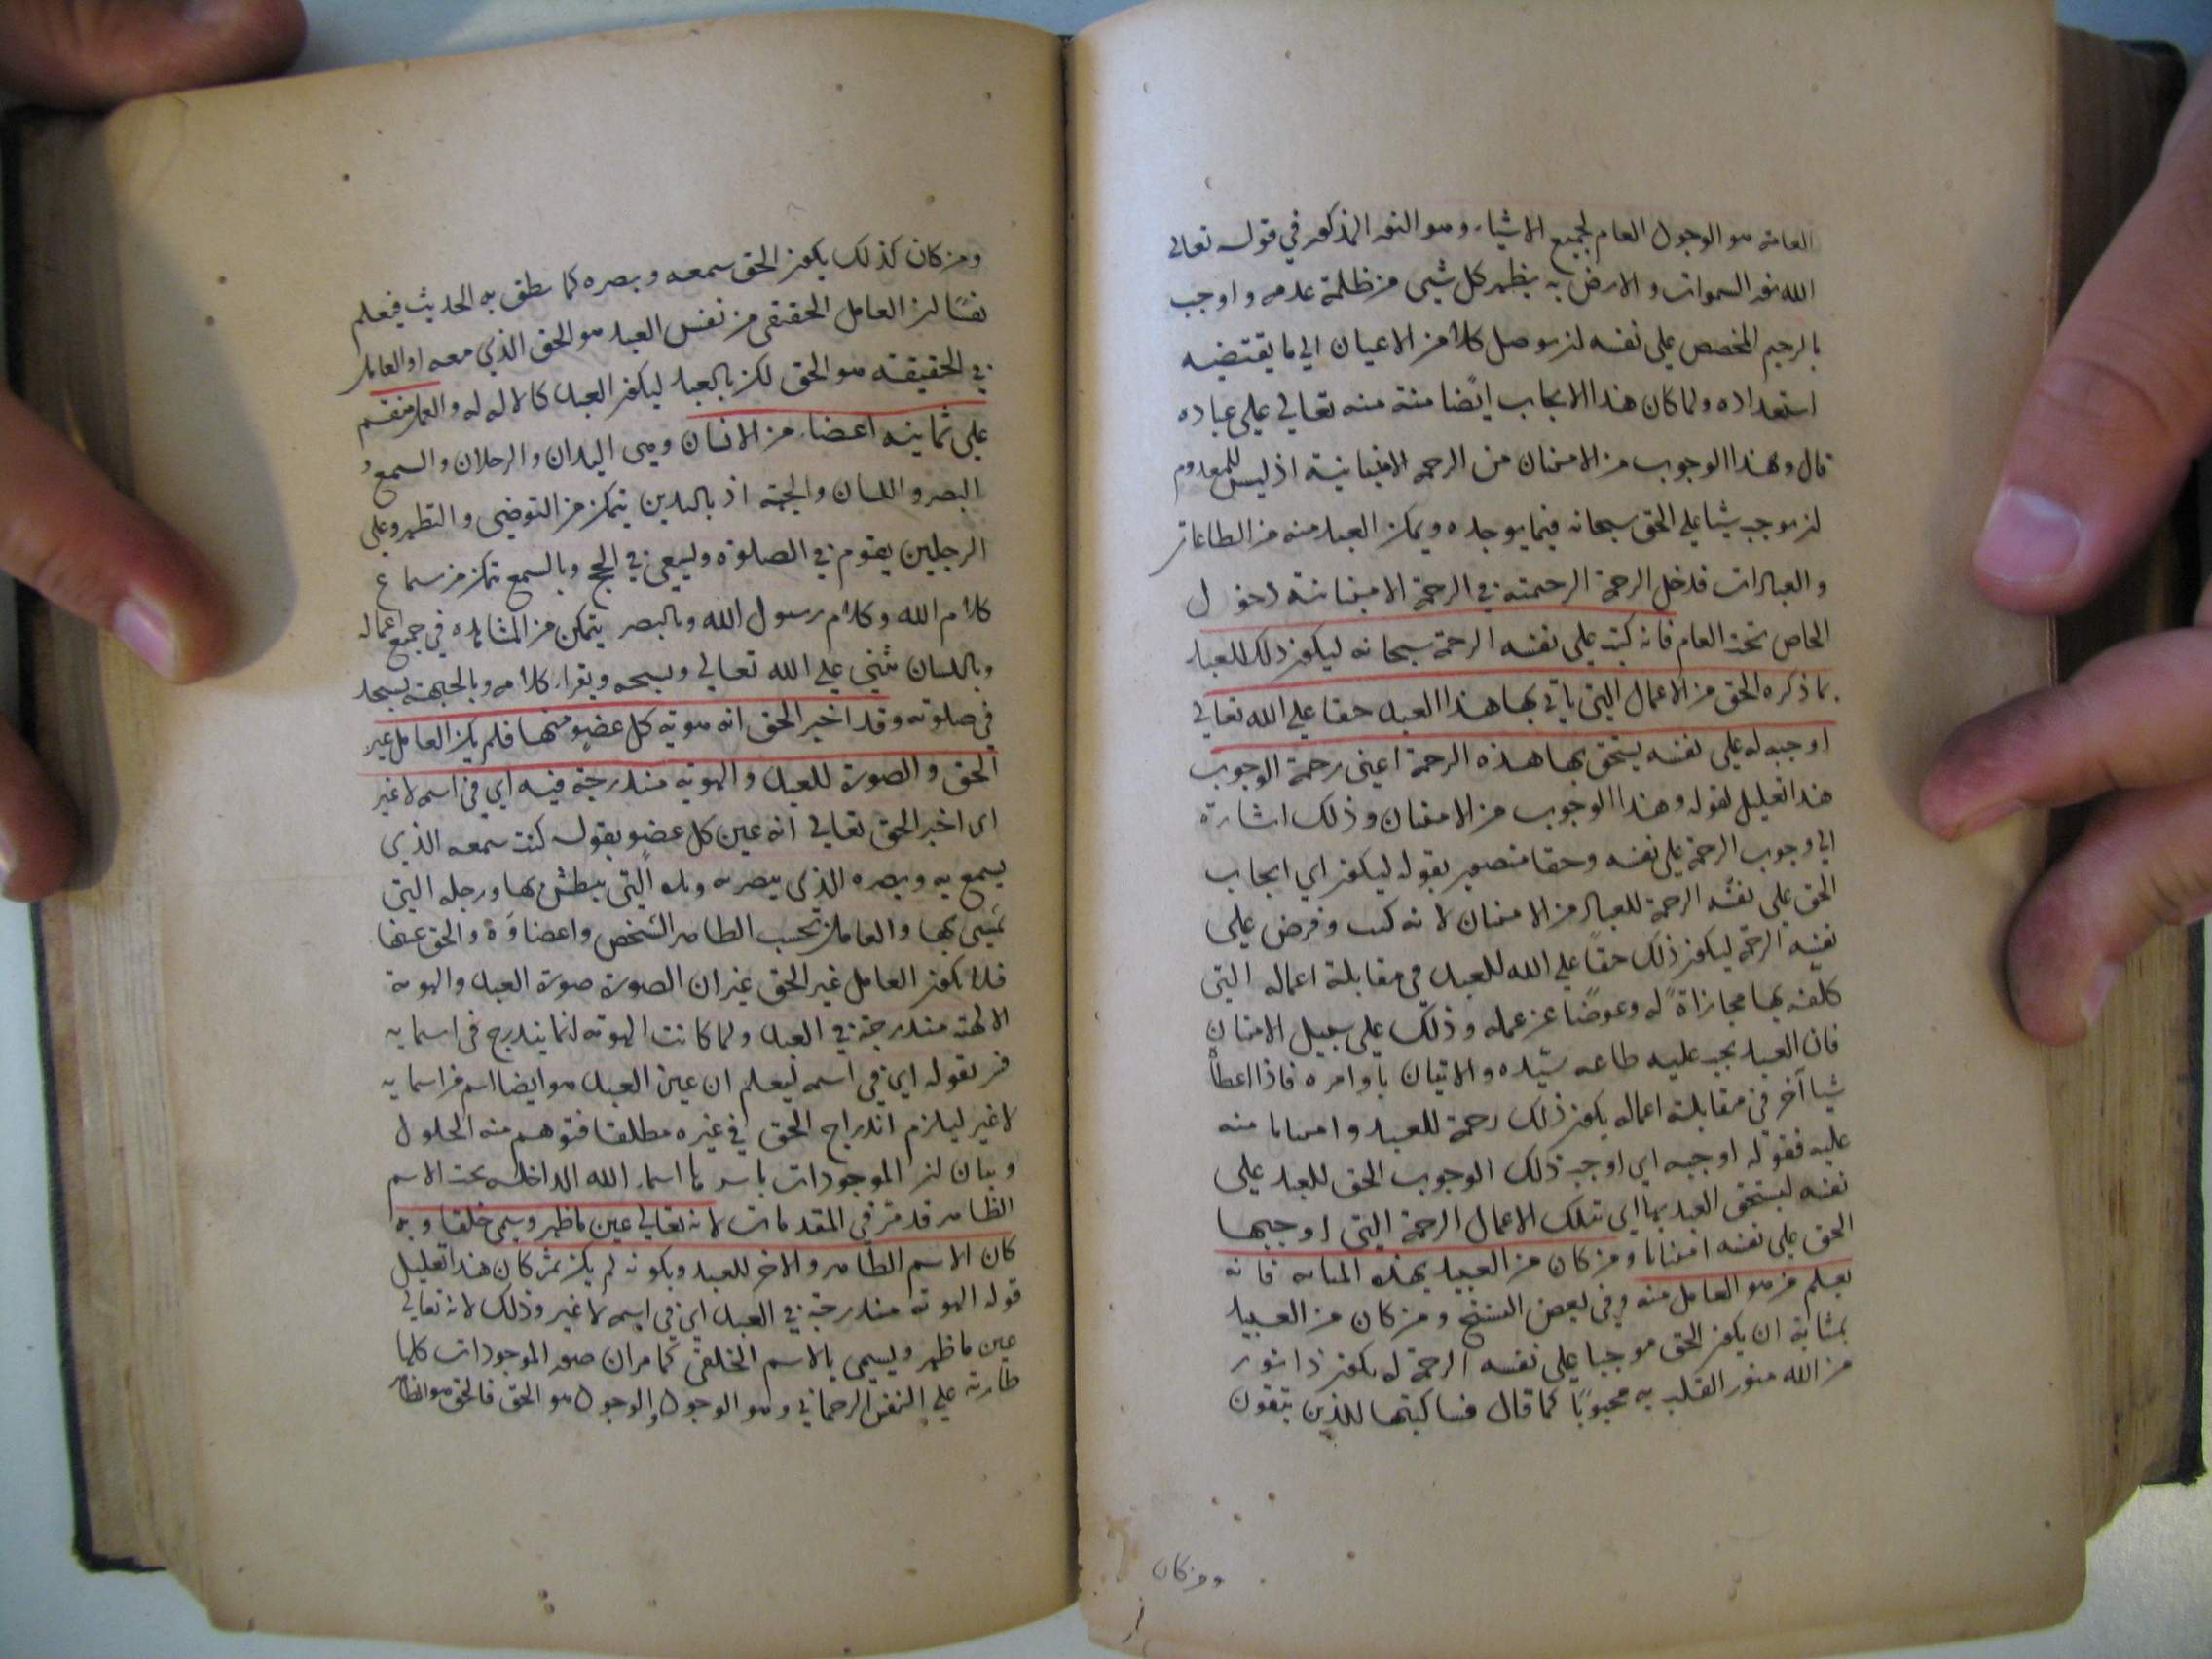 العامة هو الوجود العام لجميع الاشياء وهو النور المذكور في قوله تعالى
الله نور السموات والارض به يظهر كل شيئ من ظلمة عدمه واوجب
بالرحيم المخصص على نفسه ان يوصل كلا من الاعيان الى ما يقتضيه
استعداده ولما كان هذا الايجاب ايضا منة منه تعالى على عباده
قال وهذا الوجوب من الامتنان من الرحمة الامتنانية اذ ليس للمعدوم
ان يوجب شيئا على الحق سبحانه فيما يوجده ويمكن العبد منه من الطاعات
والعبادات فدخل الرحمة الرحيمية في الرحمة الامتنانية دخول
الخاص تحت العام فانه كتب على نفسه الرحمة سبحانه ليكون ذلك للعبد
بما ذكره الحق من الاعمال التي ياتي بها هذا العبد حقا على الله تعالى
اوجبه له على نفسه يستحق بها هذه الرحمة اعني رحمة الوجوب
هذا تعليل لقوله وهذا الوجوب من الامتنان وذلك اشارة
الى وجوب الرحمة على نفسه وحقا منصوب بقوله ليكون اي ايجاب
الحق على نفسه الرحمة للعباد من الامتنان لانه كتب وفرض على
نفسه الرحمة ليكون ذلك حقا على الله للعبد في مقابلة اعماله التي
كلفه بها مجازاة له وعوضا عن عمله وذلك على سبيل الامتنان
فان العبد يجب عليه طاعة سيده والاتيان باوامره فاذا اعطاه
شيا آخر في مقابلة اعماله يكون ذلك رحمة للعبد وامتنانا منه
عليه فقوله اوجبه اي اوجب ذلك الوجوب الحق للعبد على
نفسه ليستحق العبد بها اي بتلك الاعمال الرحمة التي اوجبها
الحق على نفسه امتنانا ومن كان من العبيد بهذه المثابة فانه
يعلم من هو العامل منه وفي بعض النسخ ومن كان من العبيد
بمثابة ان يكون الحق موجبا على نفسه الرحمة له يكون ذا نور
من الله منور القلب به محبوبا كما قال فساكتبها للذين يتقون
ومن كان
ومن كان كذلك يكون الحق سمعه وبصره كما ينطق به الحديث فيعلم
يقينا ان العامل الحقيقي من نفس العبد هو الحق الذي معه او العامل
في الحقيقة هو الحق لكن بالعبد ليكون العبد كالآلة له والعمل منقسم
على ثمانية اعضاء من الانسان وهي اليدان والرجلان والسمع و
البصر واللسان والجبهة اذ باليدين يتمكن من التوضي والتطهر وعلى
الرجلين يقوم في الصلوة ويسعى في الحج وبالسمع يتمكن من سماع
كلام الله وكلام رسول الله وبالبصر يتمكن من المشاهده في جميع اعماله
وباللسان يثني على الله تعالى ويسبحه ويقراء كلامه وبالجبهة يسجد
في صلوته وقد اخبر الحق انه هوية كل عضو منها فلم يكن العامل غير
الحق والصورة للعبد والهوية مندرجة فيه اي في اسمه لا غير
اى اخبر الحق تعالى انه عين كل عضو بقوله كنت سمعه الذي
يسمع به وبصره الذي يبصر به ويده التي يبطش بها ورجله التي
يمشي بها والعامل بحسب الظاهر الشخص واعضاؤه والحق عينها
فلا يكون العامل غير الحق غير ان الصورة صورة العبد والهوية
الالهية مندرجة في العبد ولما كانت الهوية انما يندرج في اسمايه
فسر بقوله اي في اسمه ليعلم ان عين العبد هو ايضا اسم من اسمايه
لا غير ليلزم اندراج الحق في غيره مطلقا فتوهم منه الحلول
وبيان ان الموجودات باسرها اسماء الله الداخلة تحت الاسم
الظاهر قد مر في المقدمات لانه تعالى عين ما ظهر وسمي خلقا وبه
كان الاسم الظاهر والاخر للعبد وبكونه لم يكن ثم كان هذا تعليل
قوله الهوية مندرجة في العبد اي في اسمه لا غير وذلك لانه تعالى
عين ما ظهر ويسمى بالاسم الخلقي كما مر ان صور الموجودات كلها
طارية على النفس الرحماني وهو الوجود والوجود هو الحق فالحق هو الظاهر